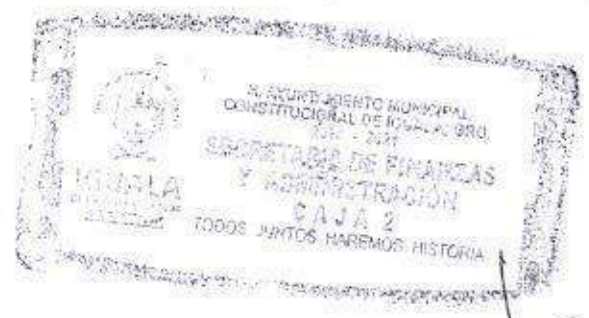 H. AYUNTAMIENTO MUNICIPAL
CONSTITUCIONAL DE IGUALA, GRO.
SECRETARIA DE FINANZAS
Y ADMINISTRACIÓN
CAJA 2
TODOS JUNTOS HAREMOS HISTORIA
IGUALA